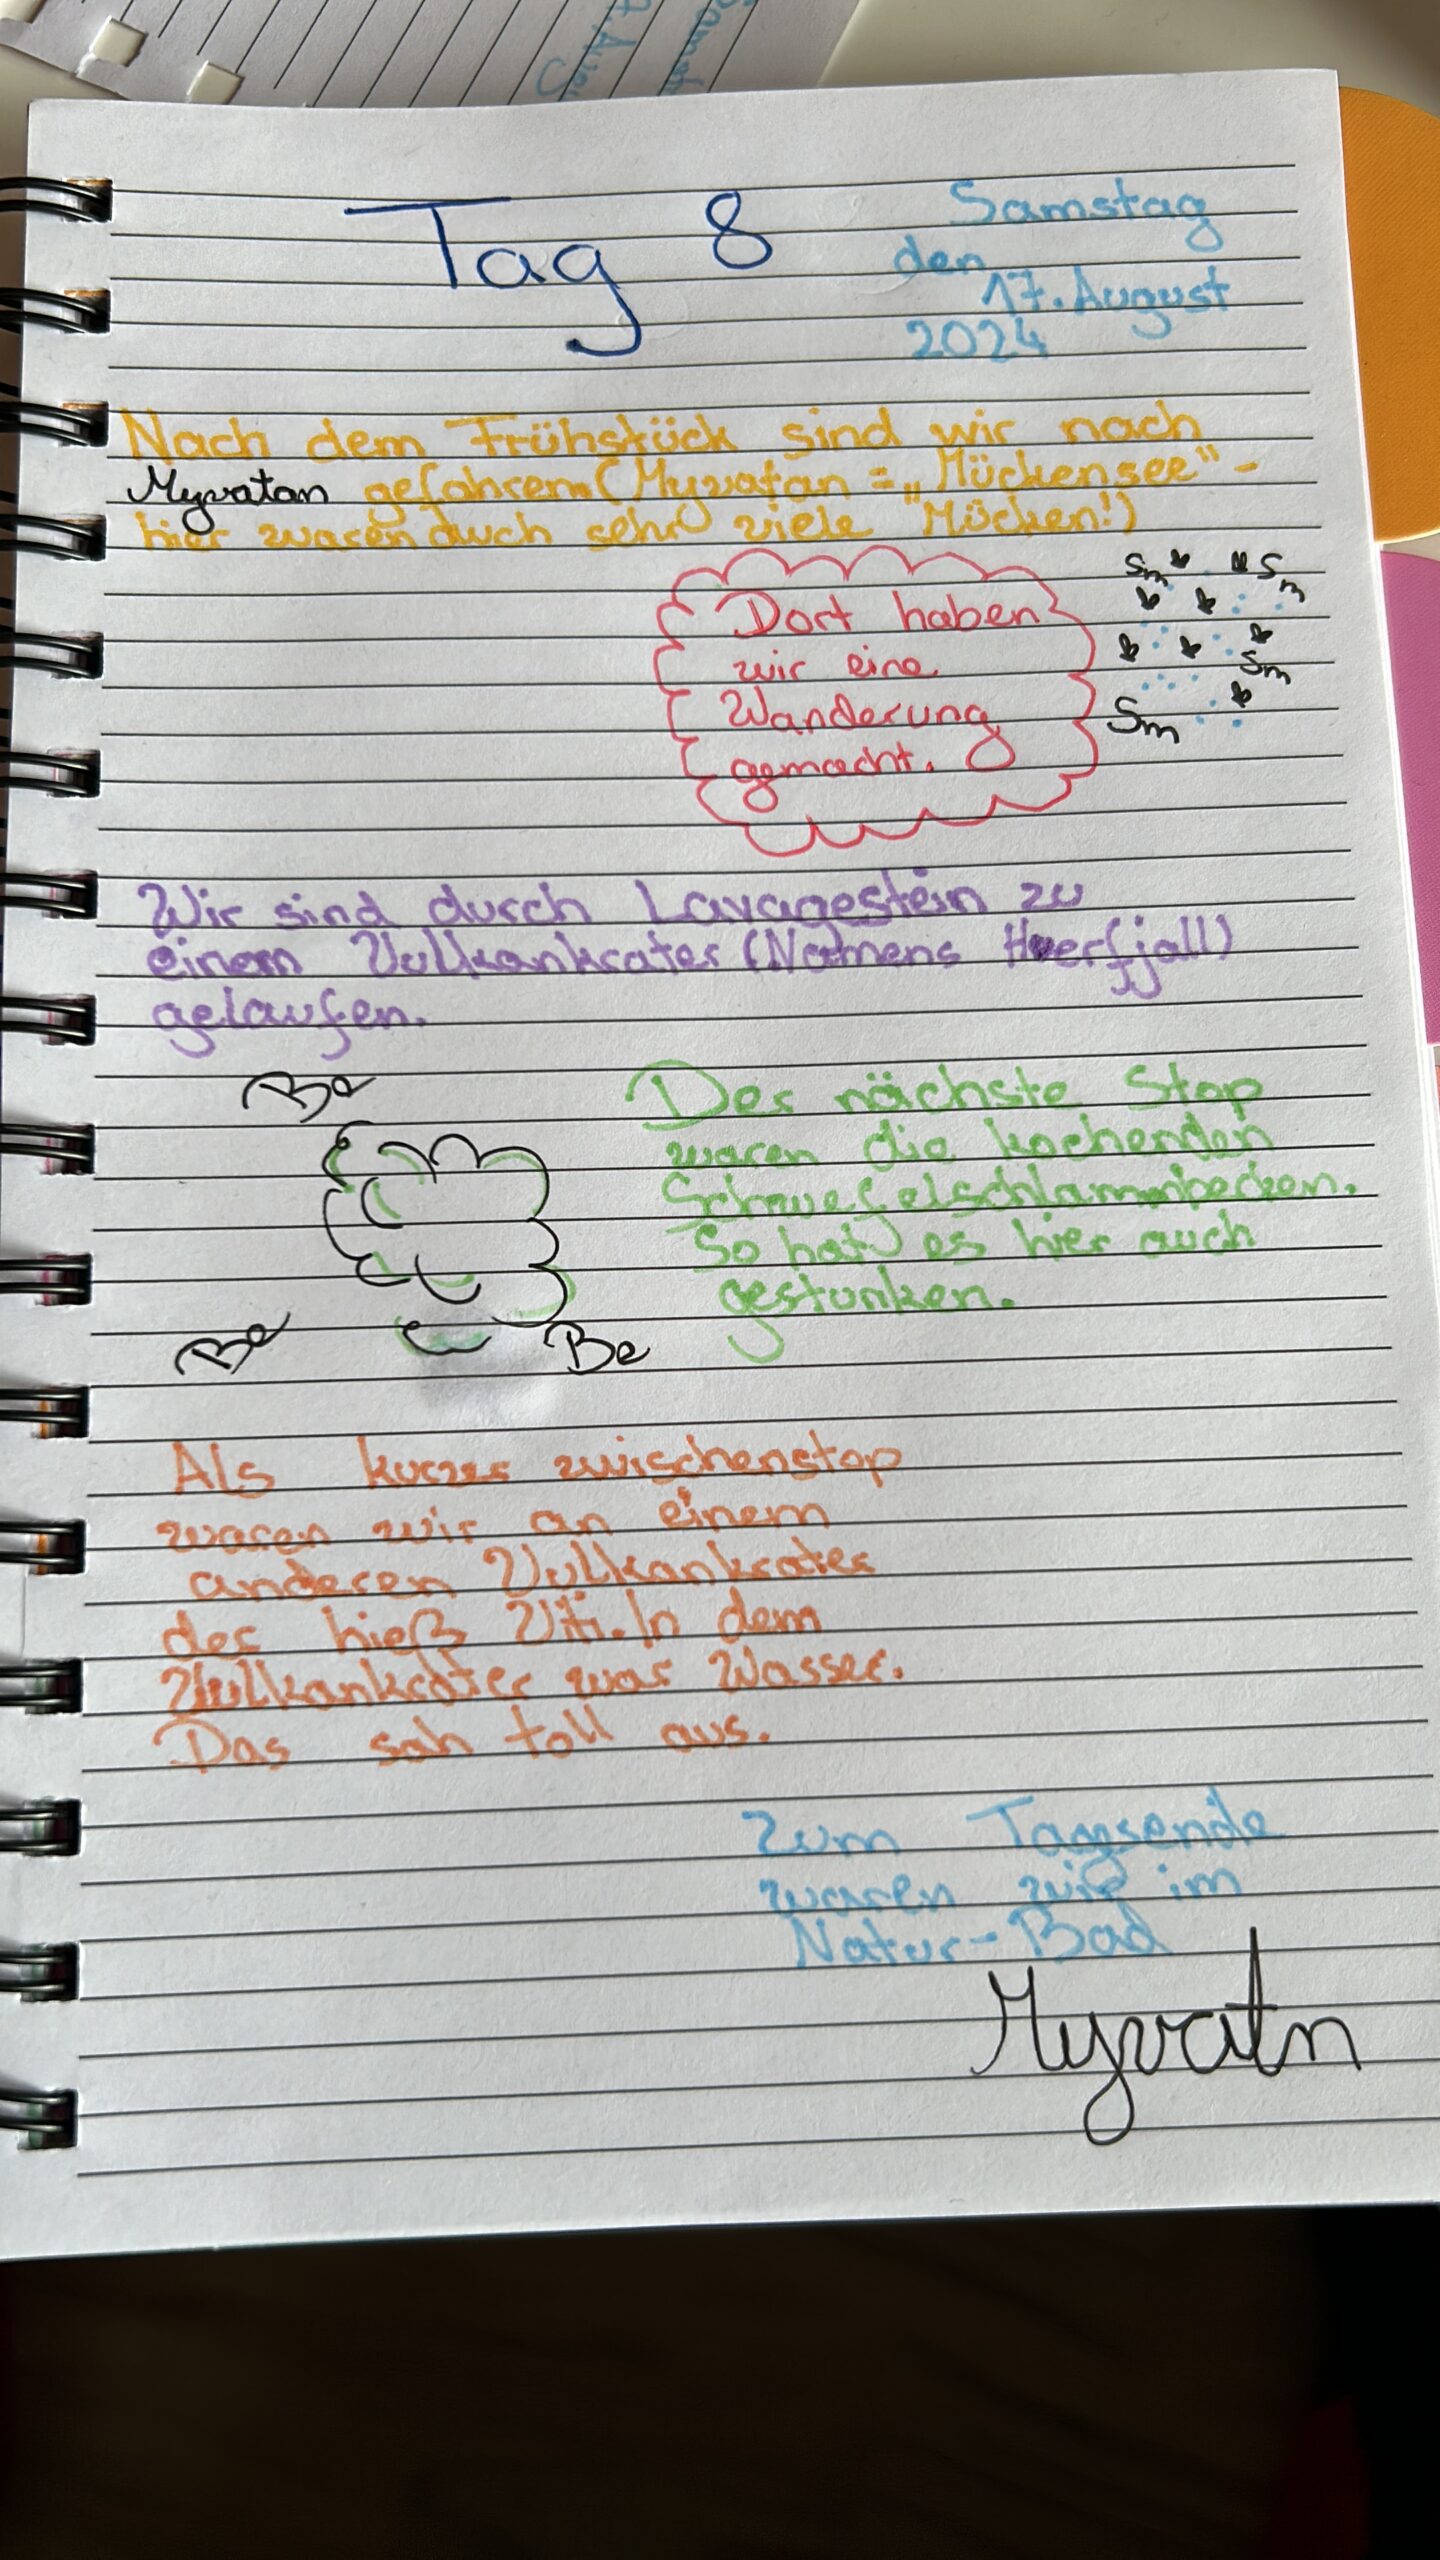 Tag 8
Samstag
den
17. August
2024
Nach dem Frühstück sind wir nach
Myvatan gefahren. (Myvatan = „Mückensee" -
hier waren auch sehr viele Mücken!)
Sm Sm
Sm
Sm
Dort haben
wir eine
Wanderung
gemacht.
Wir sind durch Lavagestein zu
einem Vulkankrater (Namens Hverfjall)
gelaufen.
Be
Be
Be
Der nächste Stop
waren die kochenden
Schwefelschlammbecken.
So hat es hier auch
gestunken.
Als kurzer zwischenstop
waren wir an einem
anderen Vulkankrater
der hieß Viti. In dem
Vulkankrater war Wasser.
Das sah toll aus.
Zum Tagsende
waren wir im
Natur-Bad
Myvatn